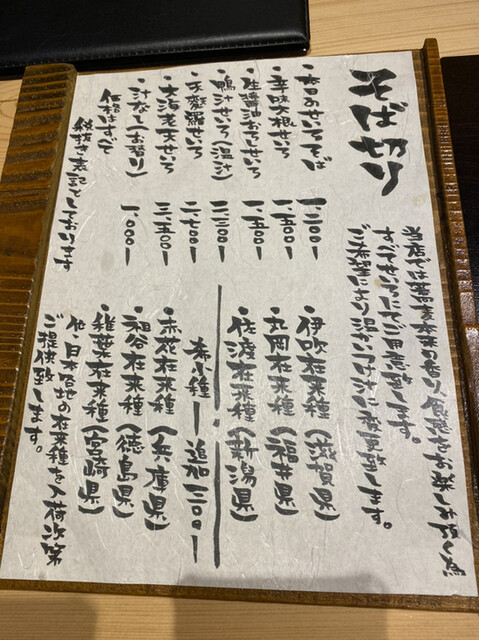 そば切り
当店では蕎麦本来の香り、食感をお楽しみ頂く為
すべてせいろにてご用意致します。
ご希望により温かいつけ汁に変更致します。
・本日のせいろそば 一、二〇〇ー
・辛味大根せいろ 一、五〇〇ー
・生醤油おろしせいろ 一、五〇〇ー
・鴨汁せいろ(温汁) 二、二〇〇ー
・天麩羅せいろ 二、七〇〇ー
・大海老天せいろ 三、五〇〇ー
・汁なし(お替り) 一、〇〇〇ー
価格はすべて
税抜き表記としております
・伊吹在来種(滋賀県)
・丸岡在来種(福井県)
・佐渡在来種(新潟県)
希少種 ー 追加二〇〇ー
・赤花在来種(兵庫県)
・祖谷在来種(徳島県)
・椎葉在来種(宮崎県)
他、日本各地の在来種を入荷次第
ご提供致します。